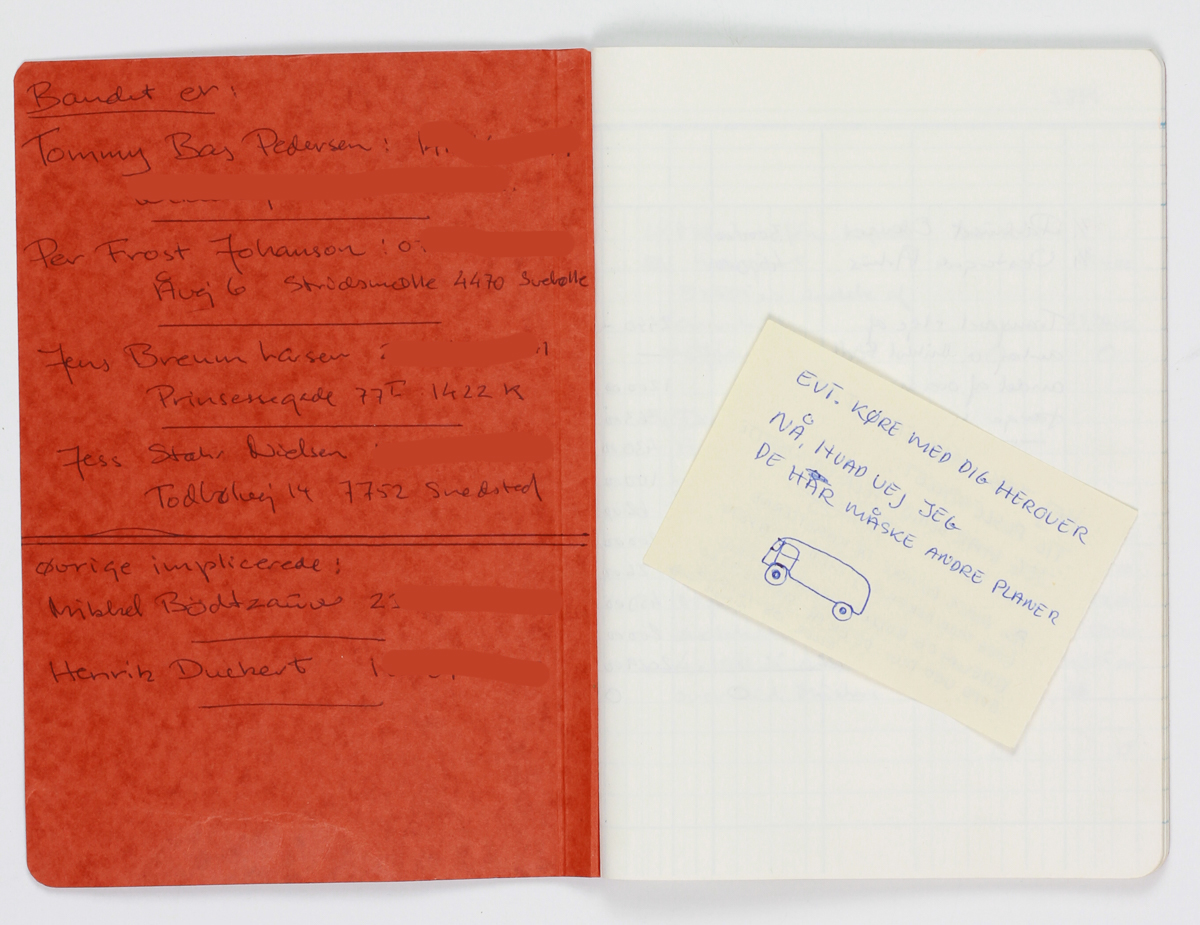 Bandet er:
Tommy Bas Pedersen:
Per Frost Johanson :
Åvej 6 Stridsmølle 4470 Svebølle
Jens Breum Larsen
Prinsessegade 77 1422 K
Jess Stahr Nielsen
14 7752 Snedsted
øvrige implicerede:
Mikkel Bødtzauw
Henrik Duckert
EVT. KØRE MED DIG HEROVER
NÅ, HVAD VEJ JEG
DE HAR MÅSKE ANDRE PLANER